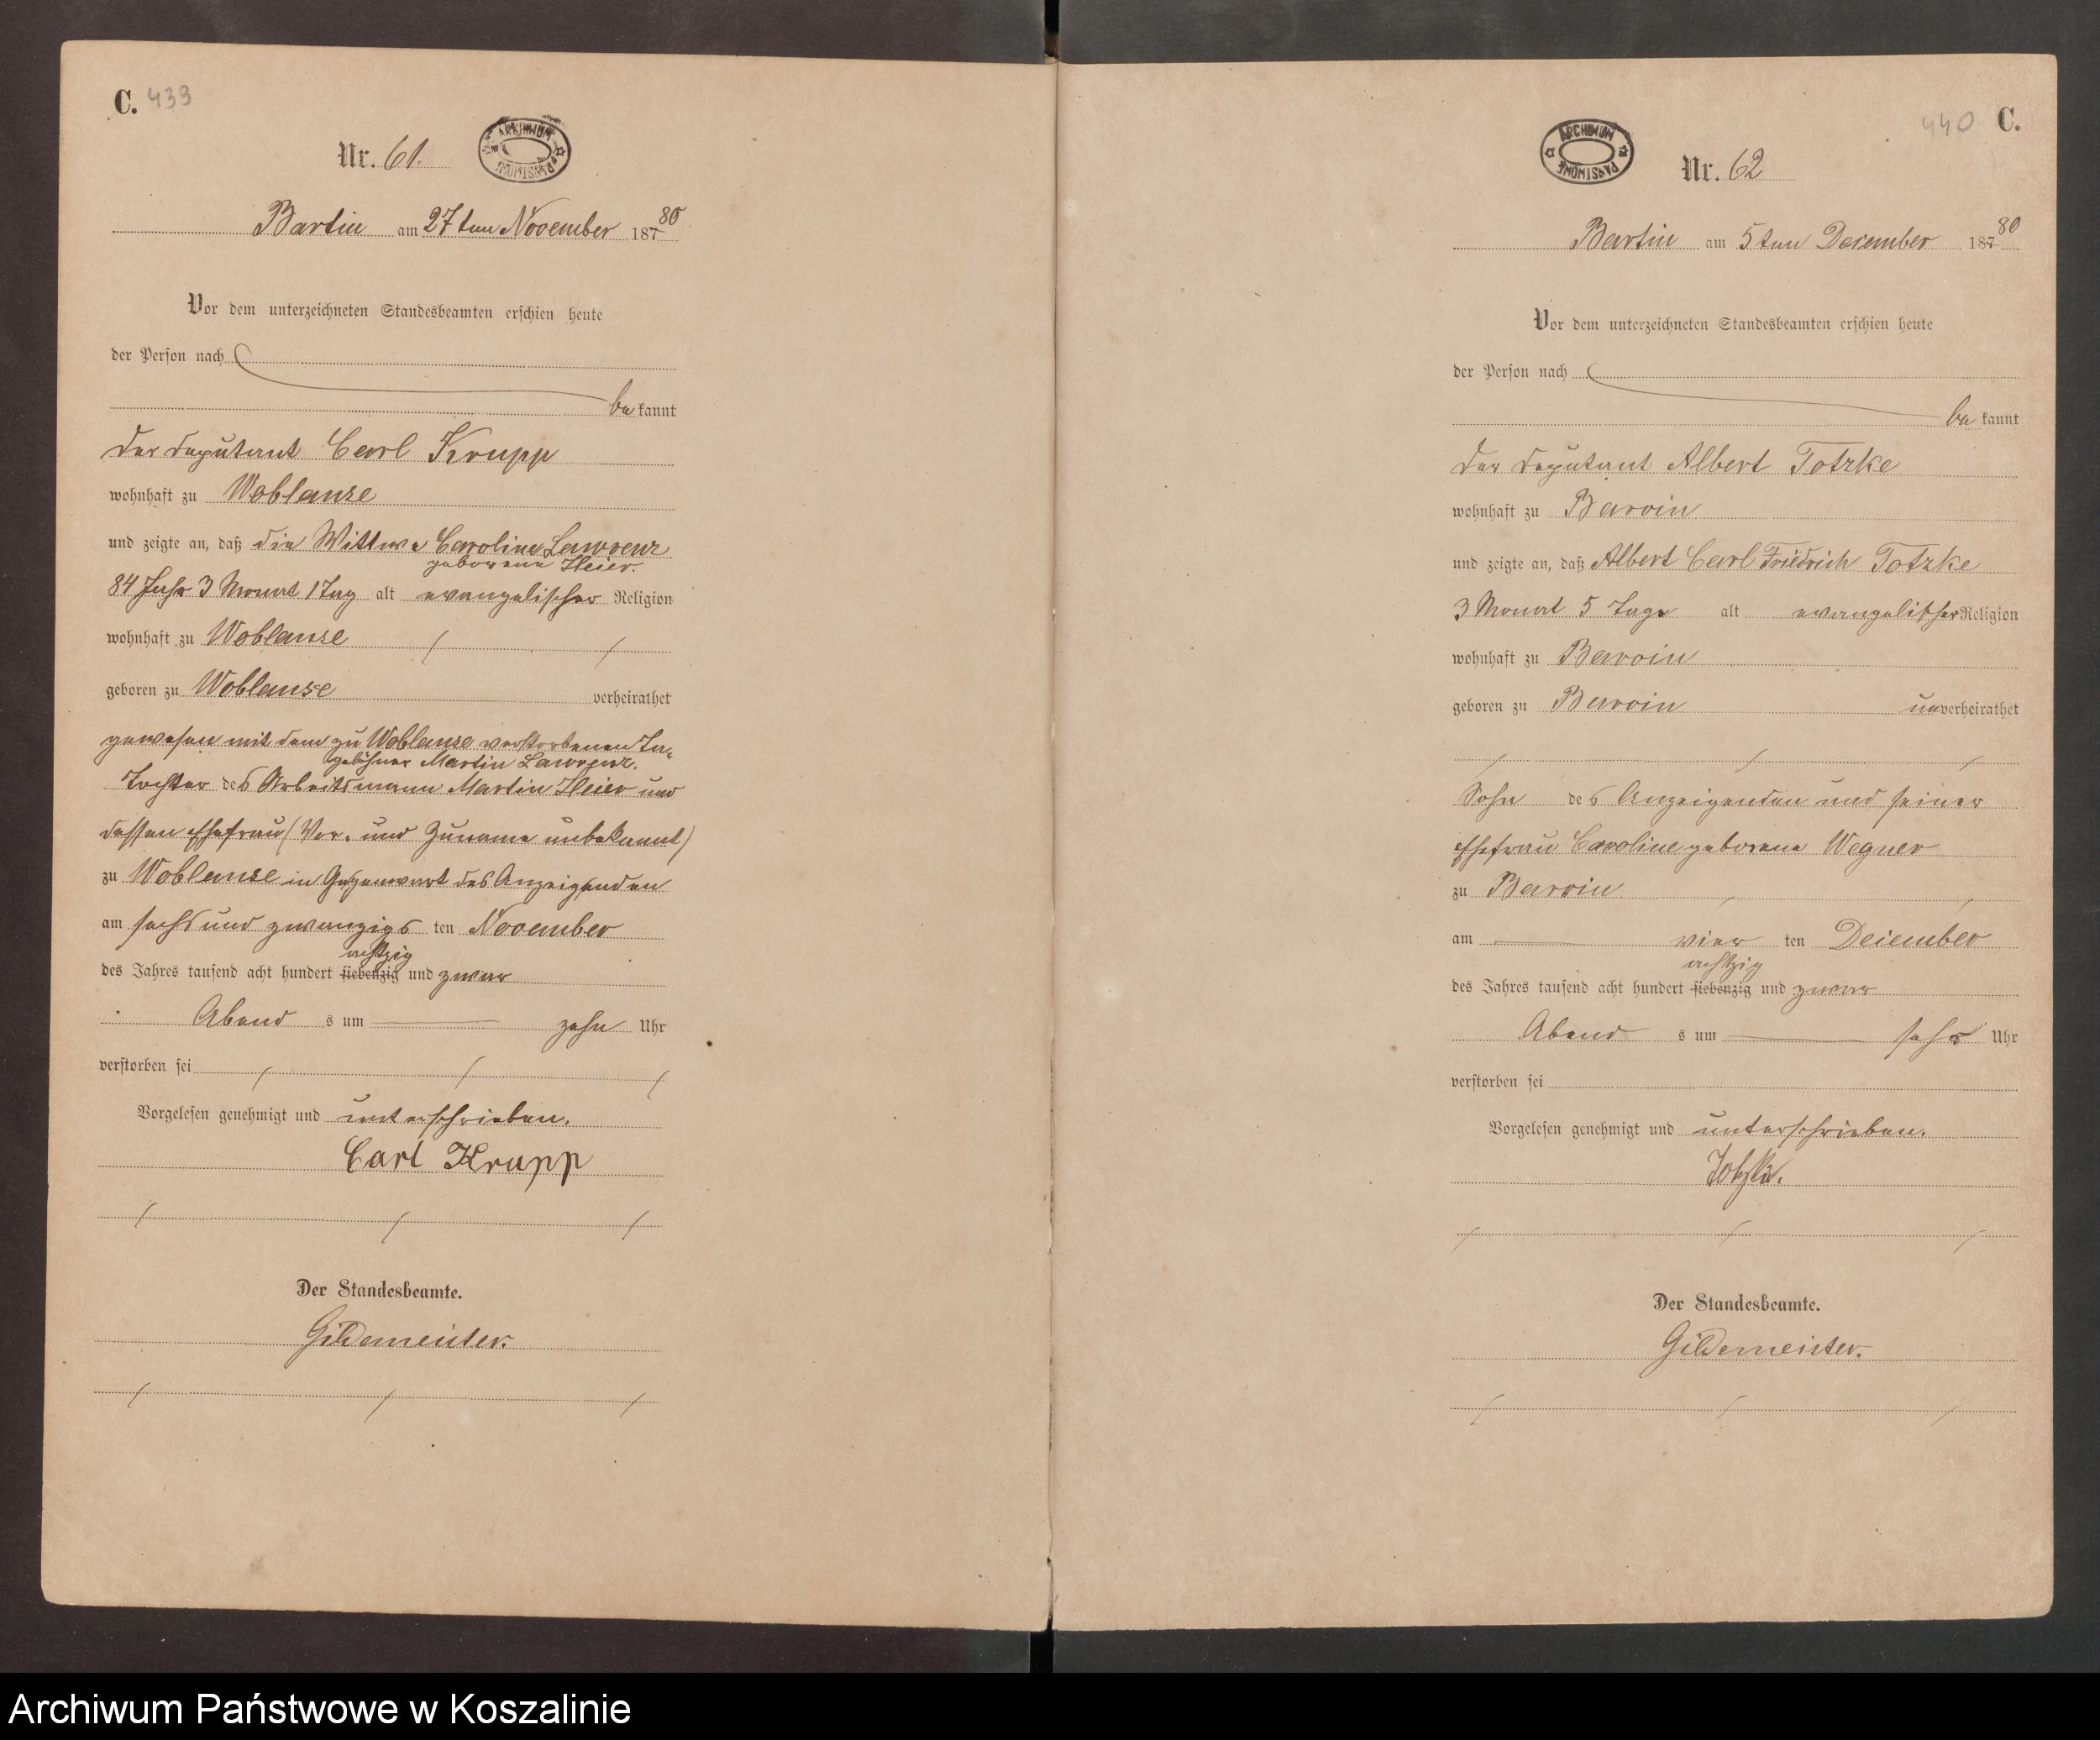 C. 439
Nr. 61.
ARCHIWUM PAŃSTWOWE
Bartin am 27ten November 187 80
Vor dem unterzeichneten Standesbeamten erschien heute
der Person nach
be kannt
der Deputant Carl Krupp
wohnhaft zu Woblanse
und zeigte an, daß die Wittwe Caroline Lawrenz
geborene Heier.
84 Jahr 3 Monat 1 Tag alt evangelischer Religion
wohnhaft zu Woblanse
geboren zu Woblanse verheirathet
gewesen mit dem zu Woblanse verstorbenen Ta-
gelöhner Martin Lawrenz.
Tochter des Arbeitsmann Martin Heier und
dessen Ehefrau (Vor- und Zuname unbekannt)
zu Woblanse in Gegenwart des Anzeigenden
am sechs und zwanzigs ten November
achtzig
des Jahres tausend acht hundert siebenzig und zwar
Abend s um zehn Uhr
verstorben sei
Vorgelesen genehmigt und unterschrieben.
Carl Krupp
Der Standesbeamte.
Gildemeister.
440 C.
ARCHIWUM PAŃSTWOWE
Nr. 62
Bartin am 5ten Dezember 187 80
Vor dem unterzeichneten Standesbeamten erschien heute
der Person nach
be kannt
der Deputant Albert Totzke
wohnhaft zu Barvin
und zeigte an, daß Albert Carl Friedrich Totzke
3 Monat 5 Tage alt evangelischer Religion
wohnhaft zu Barvin
geboren zu Barvin unverheirathet
Sohn des Anzeigenden und seiner
Ehefrau Caroline geborene Wegner
zu Barvin
am vier ten Dezember
achtzig
des Jahres tausend acht hundert siebenzig und zwar
Abend s um sechs Uhr
verstorben sei
Vorgelesen genehmigt und unterschrieben.
Totzke.
Der Standesbeamte.
Gildemeister.
Archiwum Państwowe w Koszalinie